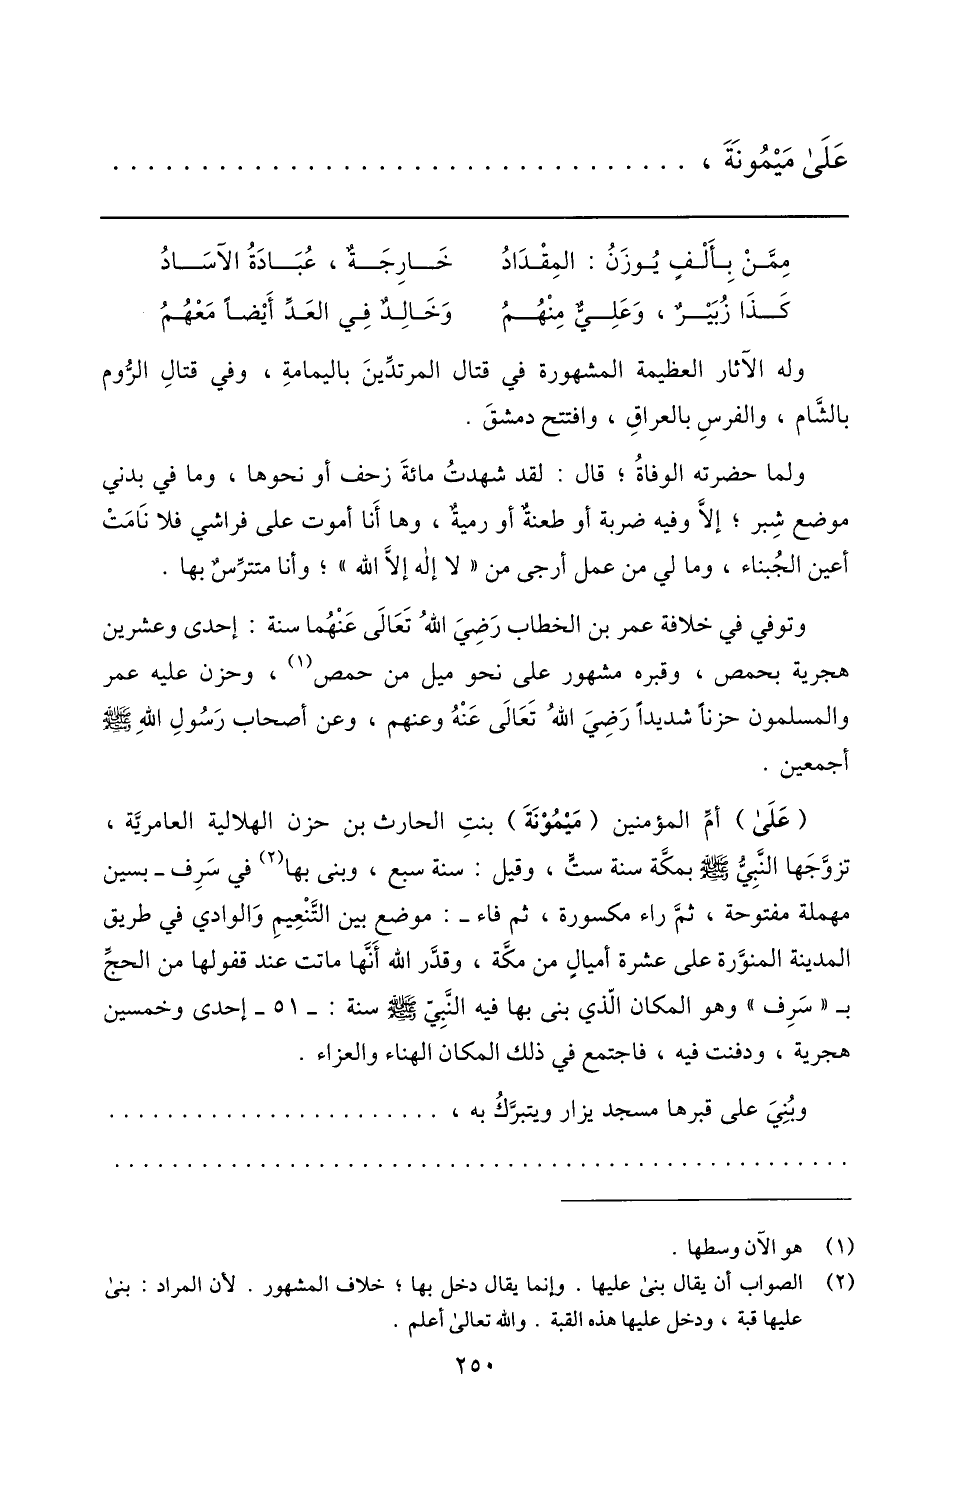 عَلَىٰ مَيْمُونَةَ ، . . . . . . . . . . . . . . . . . . . . . . . . . . . . . . . . .
مِمَّنْ بِأَلْفٍ يُوزَنُ : المِقْدَادُ خَارِجَةٌ ، عُبَادَةُ الآسَادُ
كَذَا زُبَيْرٌ ، وَعَلِيٌّ مِنْهُمُ وَخَالِدٌ فِي العَدِّ أَيْضاً مَعْهُمُ
وله الآثار العظيمة المشهورة في قتال المرتدِّينَ باليمامةِ ، وفي قتالِ الرُّوم
بالشَّام ، والفرسِ بالعراقِ ، وافتتح دمشقَ .
ولما حضرته الوفاةُ ؛ قال : لقد شهدتُ مائةَ زحف أو نحوها ، وما في بدني
موضع شِبر ؛ إلاَّ وفيه ضربة أو طعنةٌ أو رميةٌ ، وها أنا أموت على فراشي فلا نَامَتْ
أعين الجُبناء ، وما لي من عمل أرجى من « لا إلٰه إلاَّ الله » ؛ وأنا متترِّسٌ بها .
وتوفي في خلافة عمر بن الخطاب رَضِيَ اللهُ تَعَالَى عَنْهُما سنة : إحدى وعشرين
هجرية بحمص ، وقبره مشهور على نحو ميل من حمص(١) ، وحزن عليه عمر
والمسلمون حزناً شديداً رَضِيَ اللهُ تَعَالَى عَنْهُ وعنهم ، وعن أصحاب رَسُولِ اللهِ ﷺ
أجمعين .
( عَلَىٰ ) أمِّ المؤمنين ( مَيْمُوْنَةَ ) بنتِ الحارث بن حزن الهلالية العامريَّة ،
تزوَّجَها النَّبِيُّ ﷺ بمكَّة سنة ستٍّ ، وقيل : سنة سبع ، وبنى بها(٢) في سَرِف ـ بسين
مهملة مفتوحة ، ثمَّ راء مكسورة ، ثم فاء ـ : موضع بين التَّنْعِيمِ وَالوادي في طريق
المدينة المنوَّرة على عشرة أميالٍ من مكَّة ، وقدَّر الله أَنَّها ماتت عند قفولها من الحجِّ
بـ « سَرِف » وهو المكان الّذي بنى بها فيه النَّبِيّ ﷺ سنة : ـ ٥١ ـ إحدى وخمسين
هجرية ، ودفنت فيه ، فاجتمع في ذلك المكان الهناء والعزاء .
وبُنِيَ على قبرها مسجد يزار ويتبرَّكُ به ، . . . . . . . . . . . . . . . . . . . . . . .
. . . . . . . . . . . . . . . . . . . . . . . . . . . . . . . . . . . . . . . . . . . . . . .
(١) هو الآن وسطها .
(٢) الصواب أن يقال بنىٰ عليها . وإنما يقال دخل بها ؛ خلاف المشهور . لأن المراد : بنىٰ
عليها قبة ، ودخل عليها هذه القبة . والله تعالىٰ أعلم .
٢٥٠